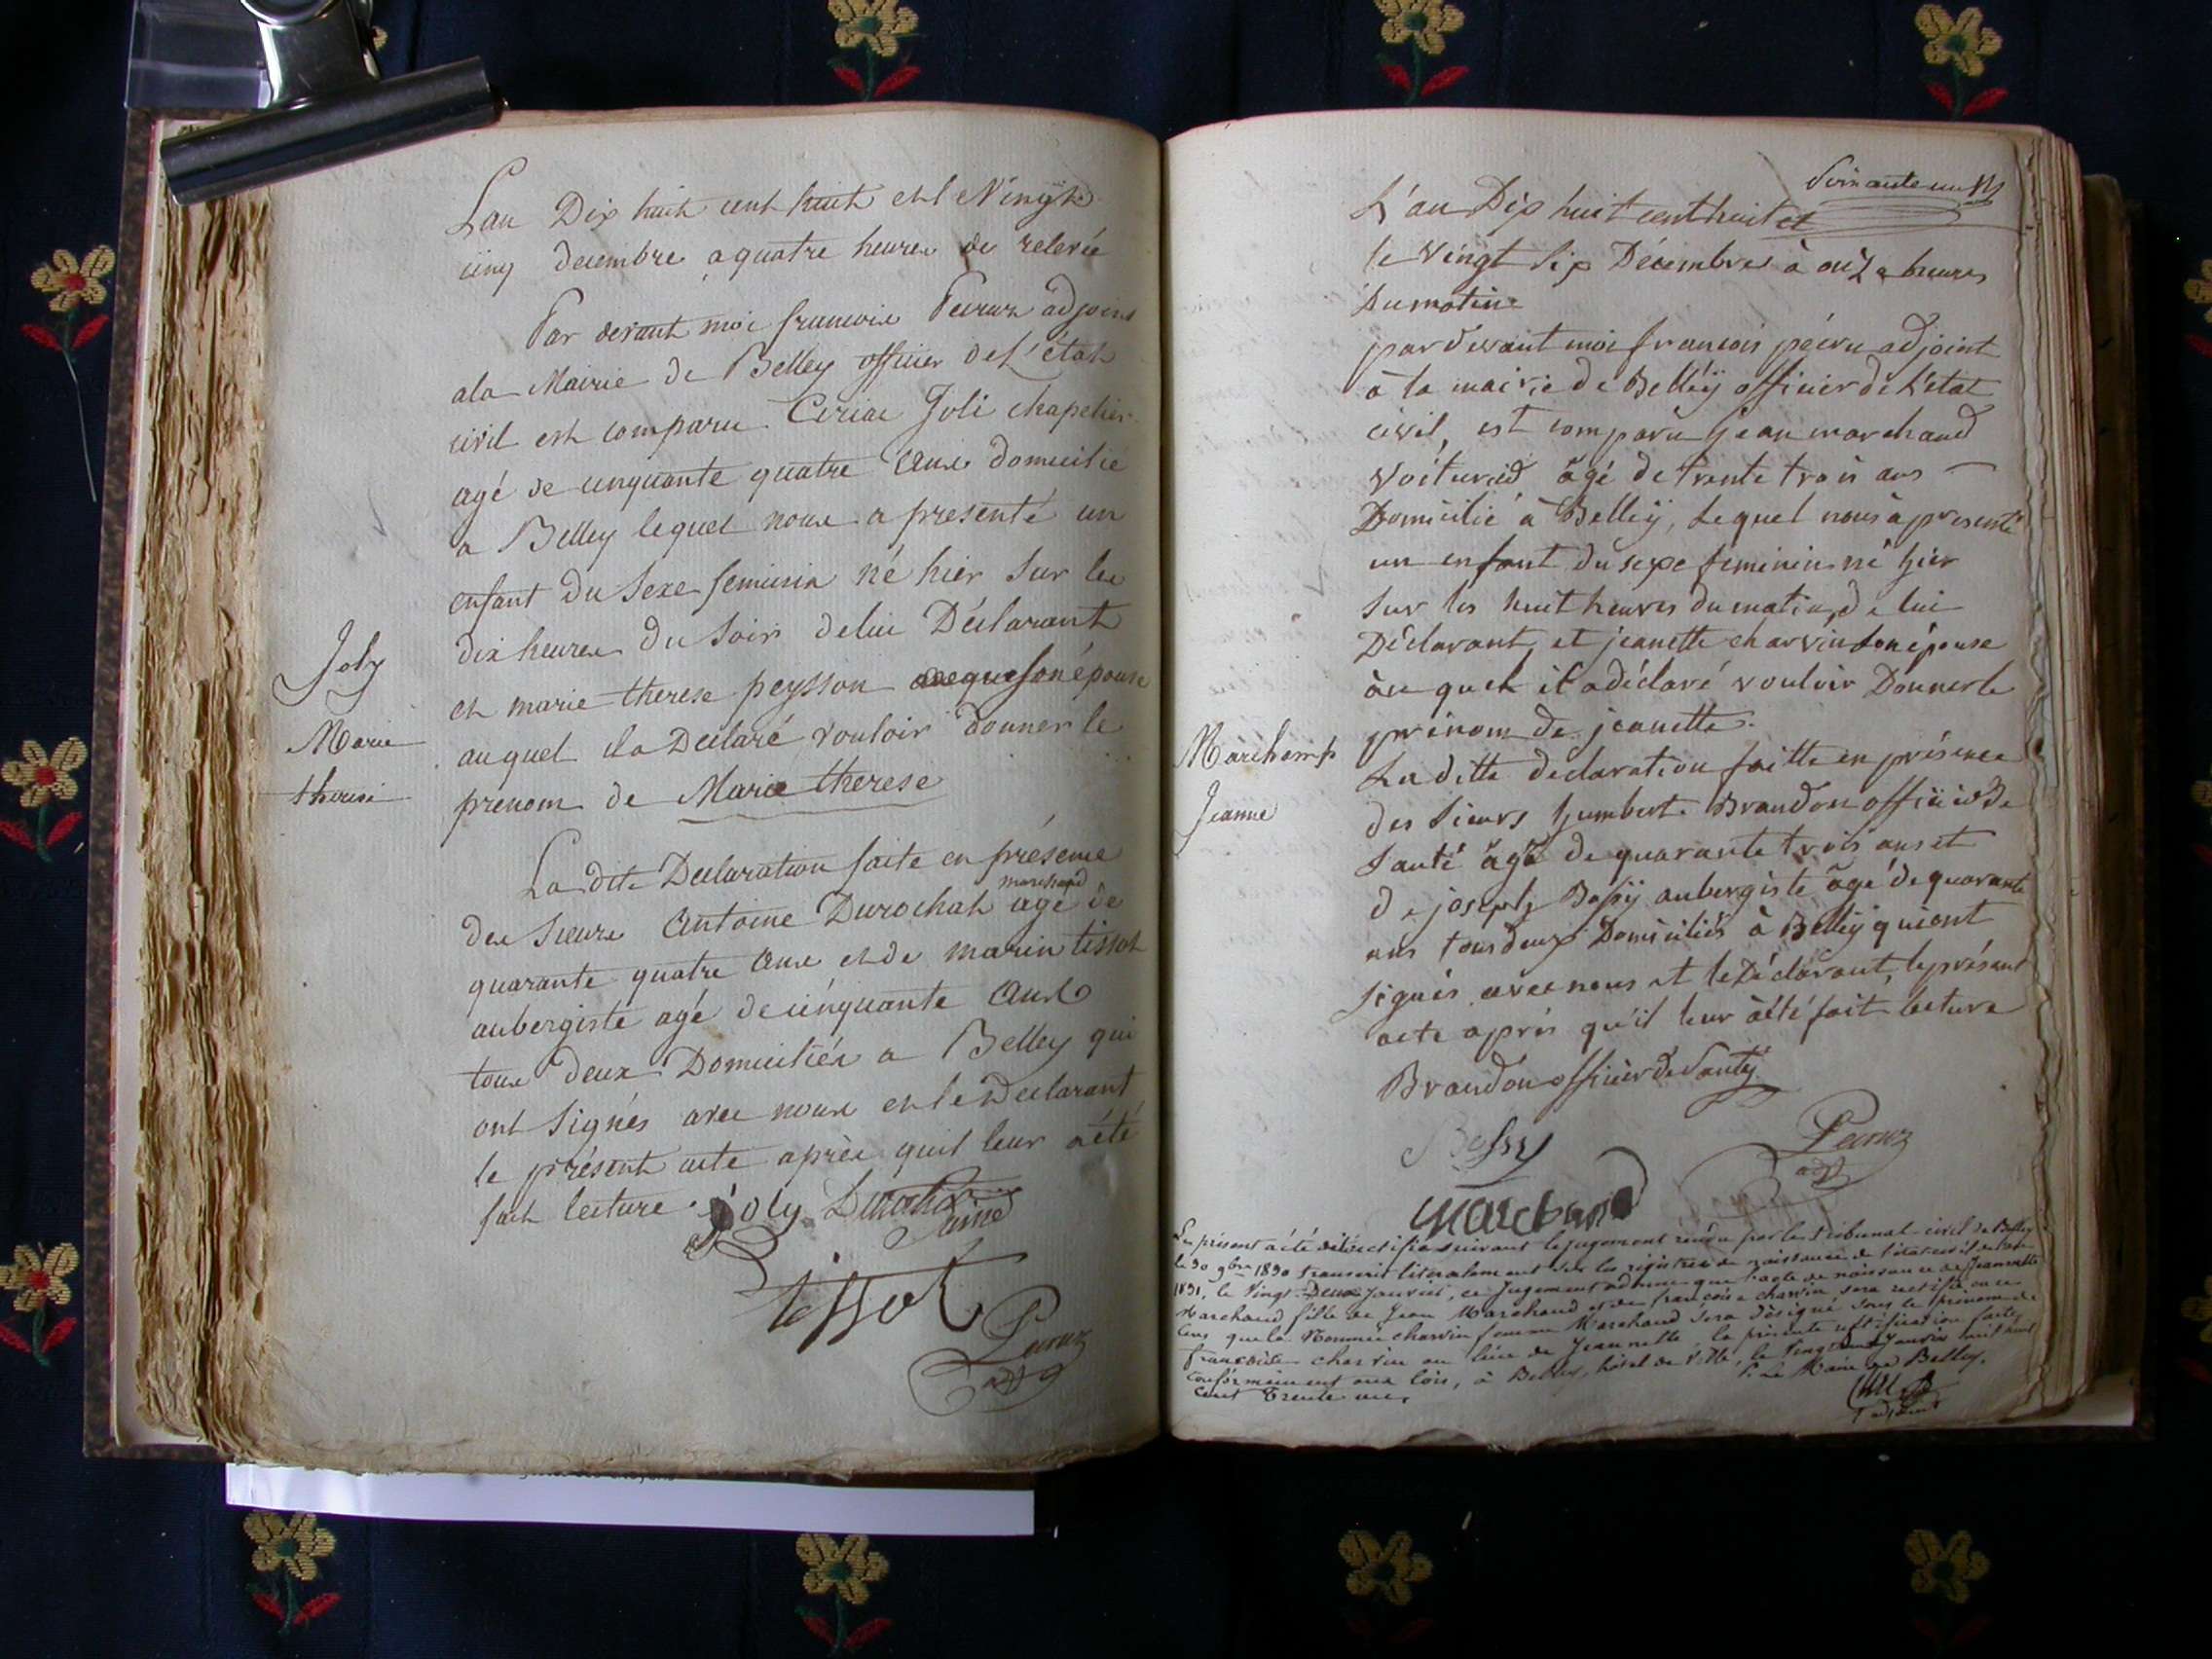 Lan Dix huit cent huit et le Vingt
cinq decembre a quatre heures de relevée
Par devant moi francois Peiruz adjoint
ala Mairie de Belley officier de L'état
civil est comparu Ciriac Joli chapelier
agé de cinquante quatre ans domicilié
a Belley lequel nous a presenté un
enfant du Sexe feminin né hier sur les
dix heures du Soir de lui Déclarant
et marie therese peysson son épouse
auquel ila Déclaré vouloir donner le
prenom de Marie therese
La dite Declaration faite en présence
des Sieurs Antoine Durochat marchand agé de
quarante quatre ans et de marin tissot
aubergiste agé de cinquante ans
tous deux Domiciliés a Belley qui
ont Signés avec nous et le Declarant
le présent acte après quil leur a été
fait lecture . joly Durochat
ainé
tissot
Peiruz
adj
Joly
Marie
therese
Soixante un
L'an Dix huit cent huit et
le Vingt Six Décembre à onze heures
Du matin
par devant moi francois péiru adjoint
à la mairie de Belleÿ officier de L'etat
civil, est comparu Jean marchand
Voiturier âgé de trente trois ans
Domicilié à Belleÿ, Lequel nous à présenté
un enfant du sexe feminin né hier
Sur les huit heures du matin, de lui
Déclarant, et jeanette charvin Son épouse
àu quel il a déclaré vouloir Donner le
prénom de jeanette.
La ditte declaration faitte en présence
des Sieurs humbert Brandon officié de
Santé âgé de quarante trois ans et
de joseph Bessÿ aubergiste âgé de quarante
ans tous deux Domiciliés à Belleÿ qui ont
signés avec nous et le Déclarant, le présent
acte après qu'il leur à été fait lecture
Brandon officier de Santé
Bessy
Peiruz
adj
Marchand
Marchamp
Jeanne
Le présent a été rectifié suivant le jugement rendu par le tribunal civil de Belley
le 30 9bre 1830 transcrit literalement sur les registres de naissance de l'état civil de
1831, le Vingt Deux Janvier, ce Jugement ordonne que l'acte de naissance de Jeannette
Marchand fille de Jean Marchand et de françoise charvin sera rectifié en ce
sens que la Nommée charvin femme Marchand sera désigné sous le prénom de
françoise charvin au lieu de Jeannette, la présente rectification faite
conformément aux lois, à Belley, hôtel de Ville, le Vingt deux Janvier mil huit
cent trente un.
P. Le Maire de Belley.
adjoint